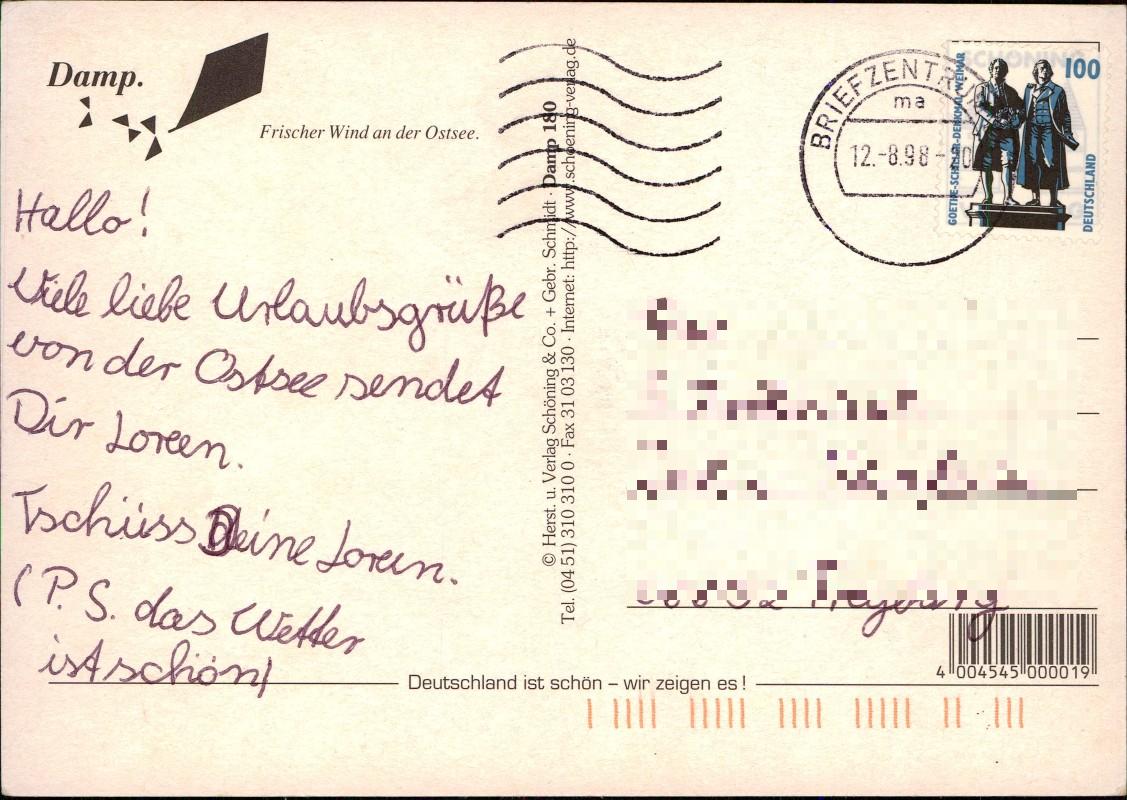 Damp.
Frischer Wind an der Ostsee.
Hallo!
Viele liebe Urlaubsgrüße
von der Ostsee sendet
Dir Loreen.
Tschüss Deine Loreen.
(P.S. das Wetter
ist schön)
© Herst. u. Verlag Schöning & Co. + Gebr. Schmidt · Damp 180
Tel. (04 51) 310 310 0 · Fax 31 03 130 · Internet: http://www.schoening-verlag.de
BRIEFZENTR
ma
12.-8.98
SCHÖNING
GOETHE-SCHILLER-DENKMAL WEIMAR
100
DEUTSCHLAND
4 004545 000019
Deutschland ist schön – wir zeigen es!